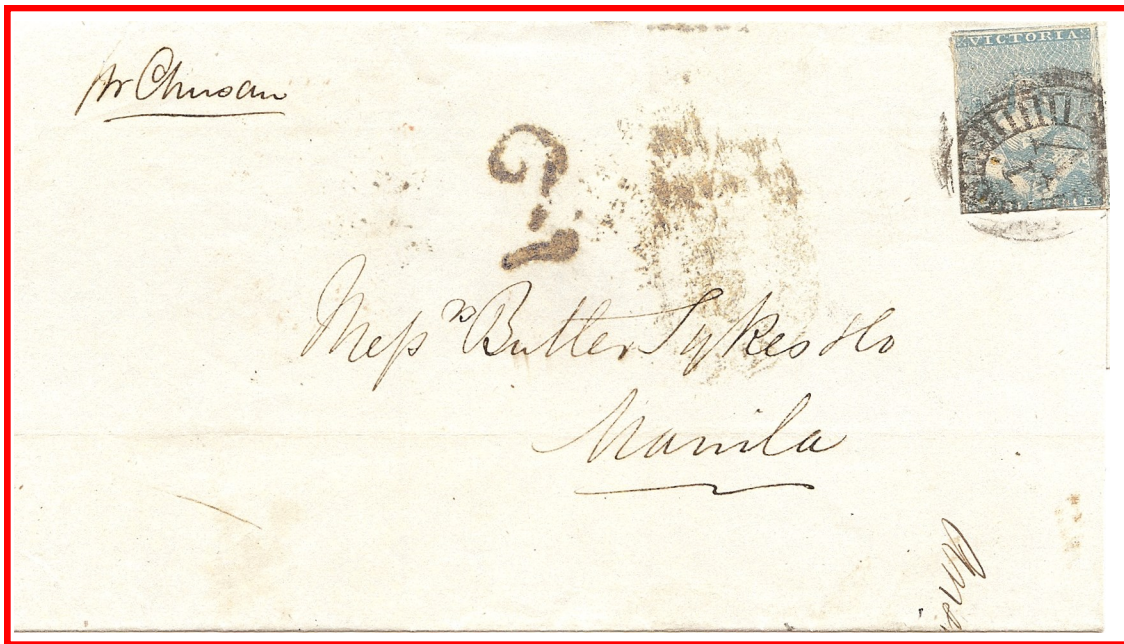 pr Chusan
VICTORIA
2
Messrs Butler Sykes & Co
Manila